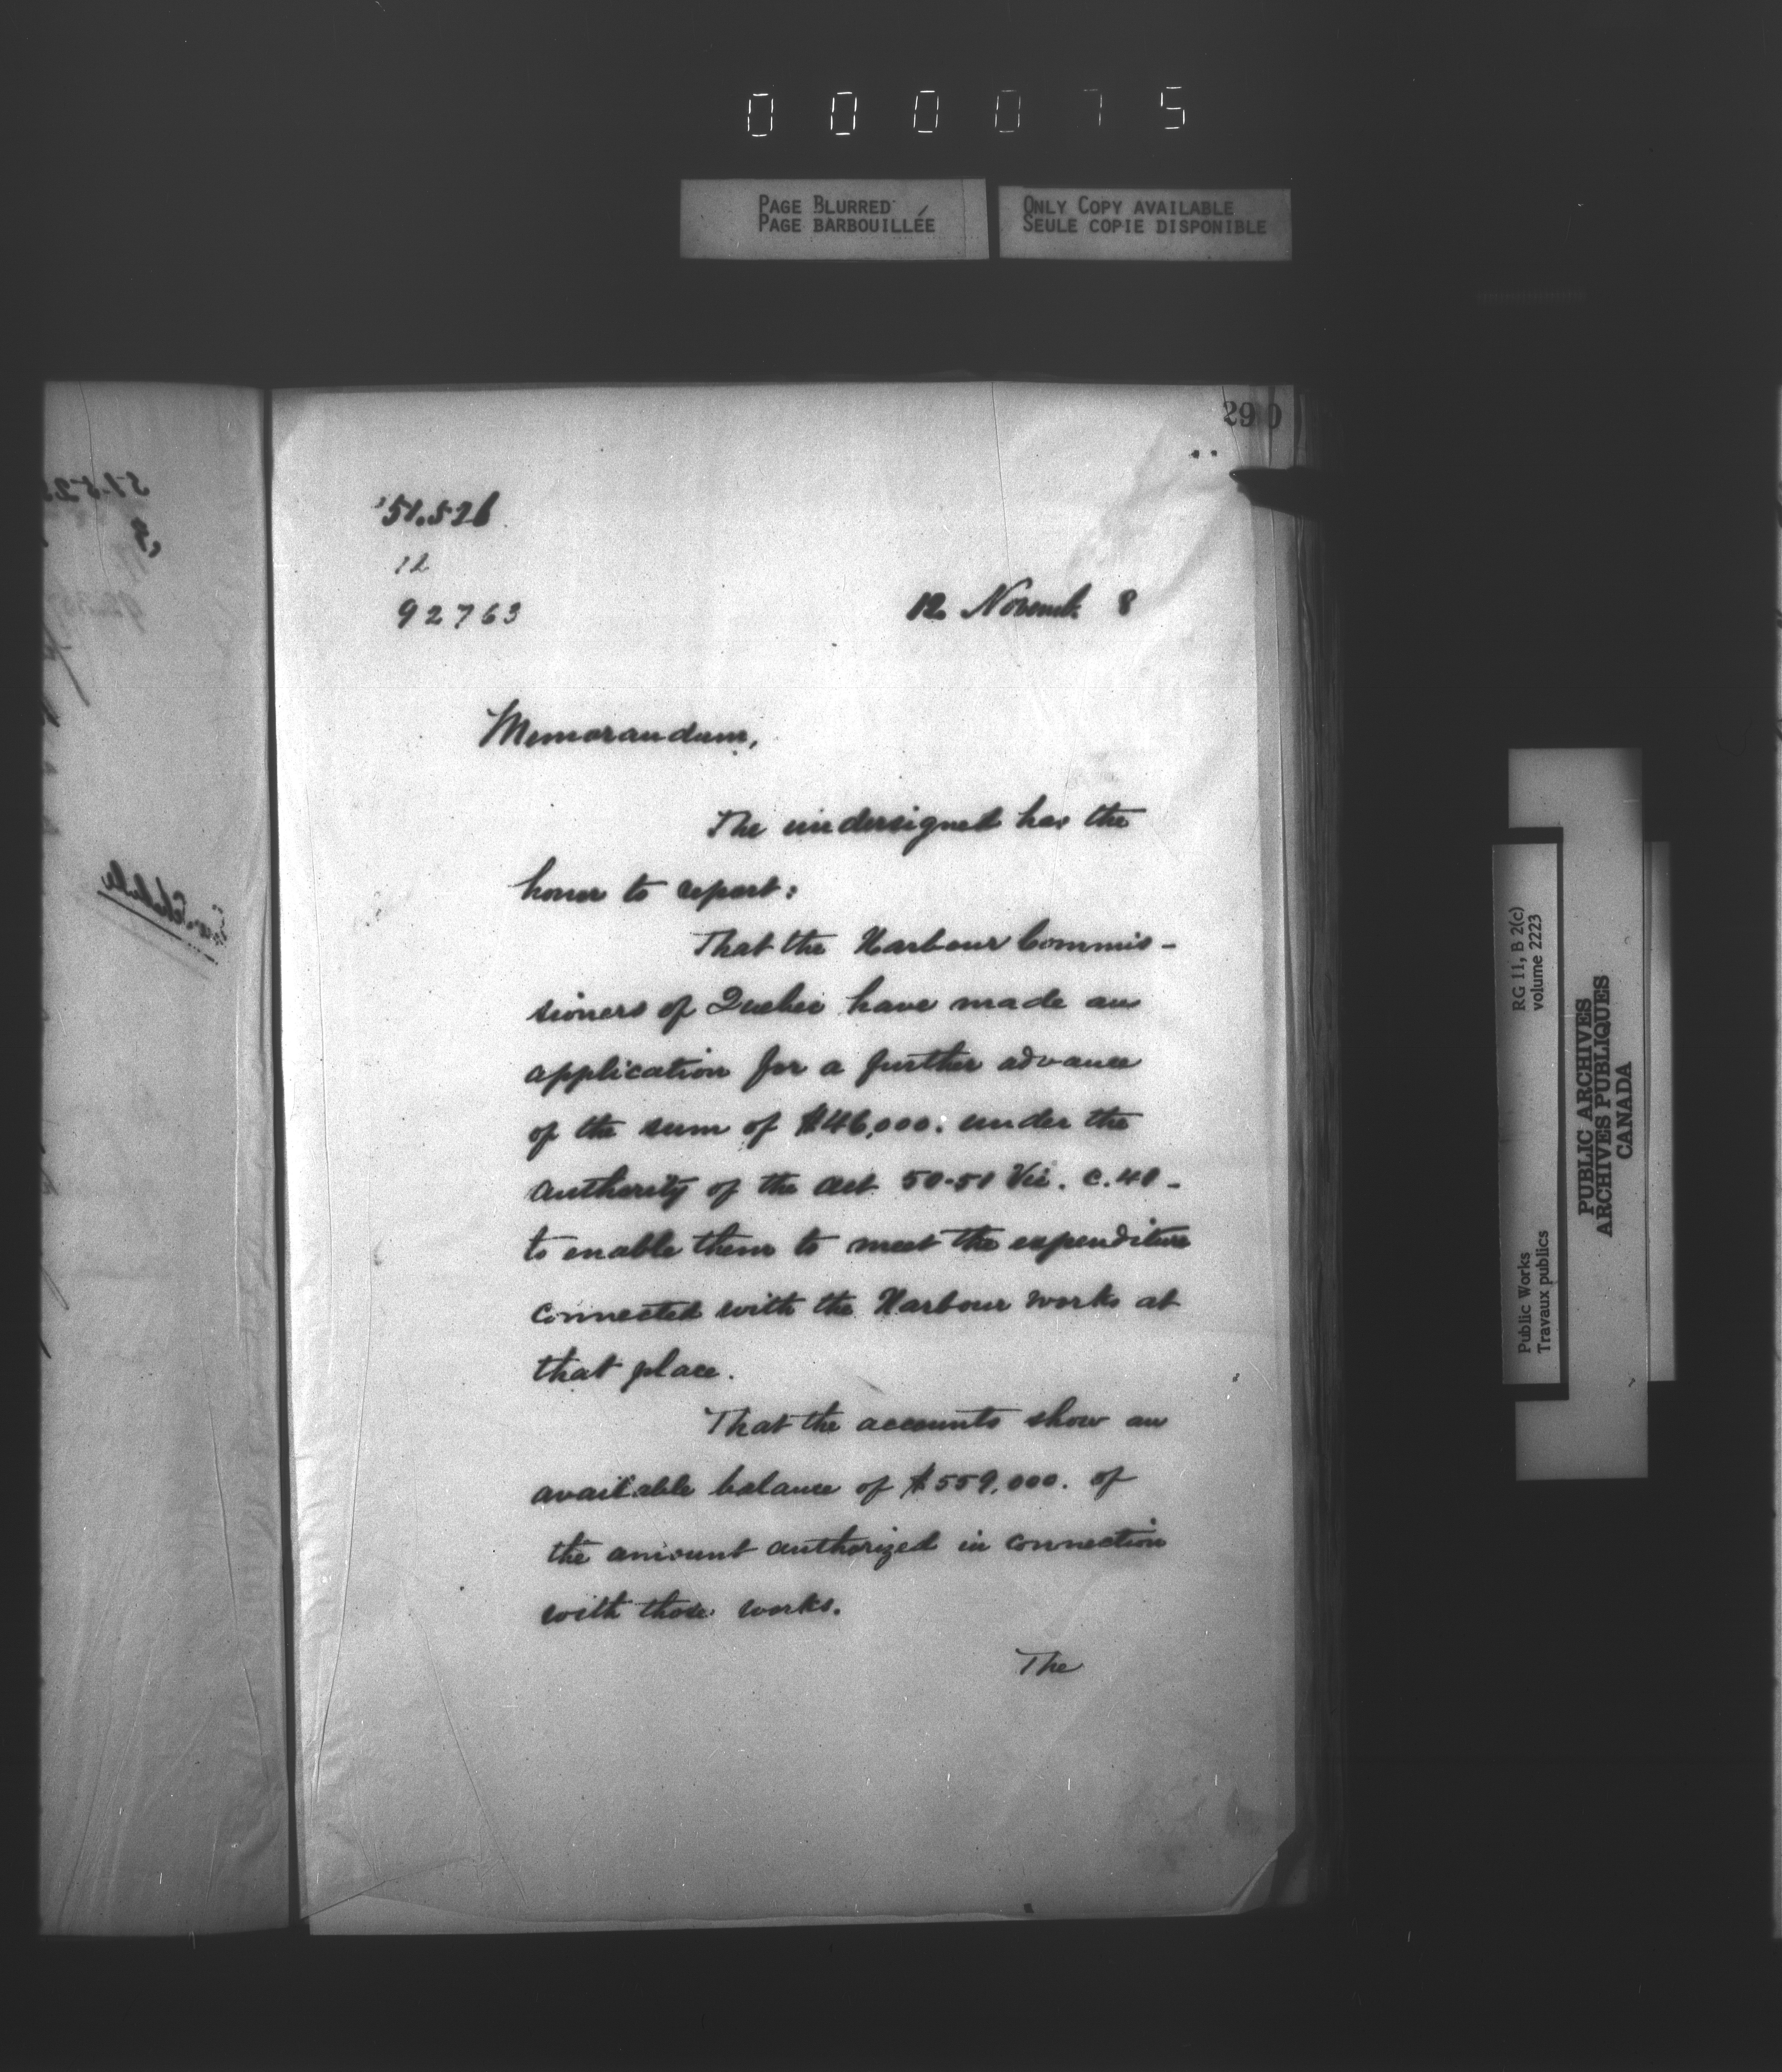 000075
PAGE BLURRED
PAGE BARBOUILLÉE
ONLY COPY AVAILABLE
SEULE COPIE DISPONIBLE
290
51.526
12
92763
12 Novemb. 8
Memorandum,
The undersigned has the
honor to report:
That the Harbour Commis-
sioners of Quebec have made an
application for a further advance
of the sum of $46,000. under the
authority of the Act 50-51 Vic. c. 41 -
to enable them to meet the expenditure
connected with the Harbour works at
that place.
That the accounts show an
available balance of $559,000. of
the amount authorized in connection
with those works.
The
Public Works
Travaux publics
RG 11, B 2(c)
volume 2223
PUBLIC ARCHIVES
ARCHIVES PUBLIQUES
CANADA